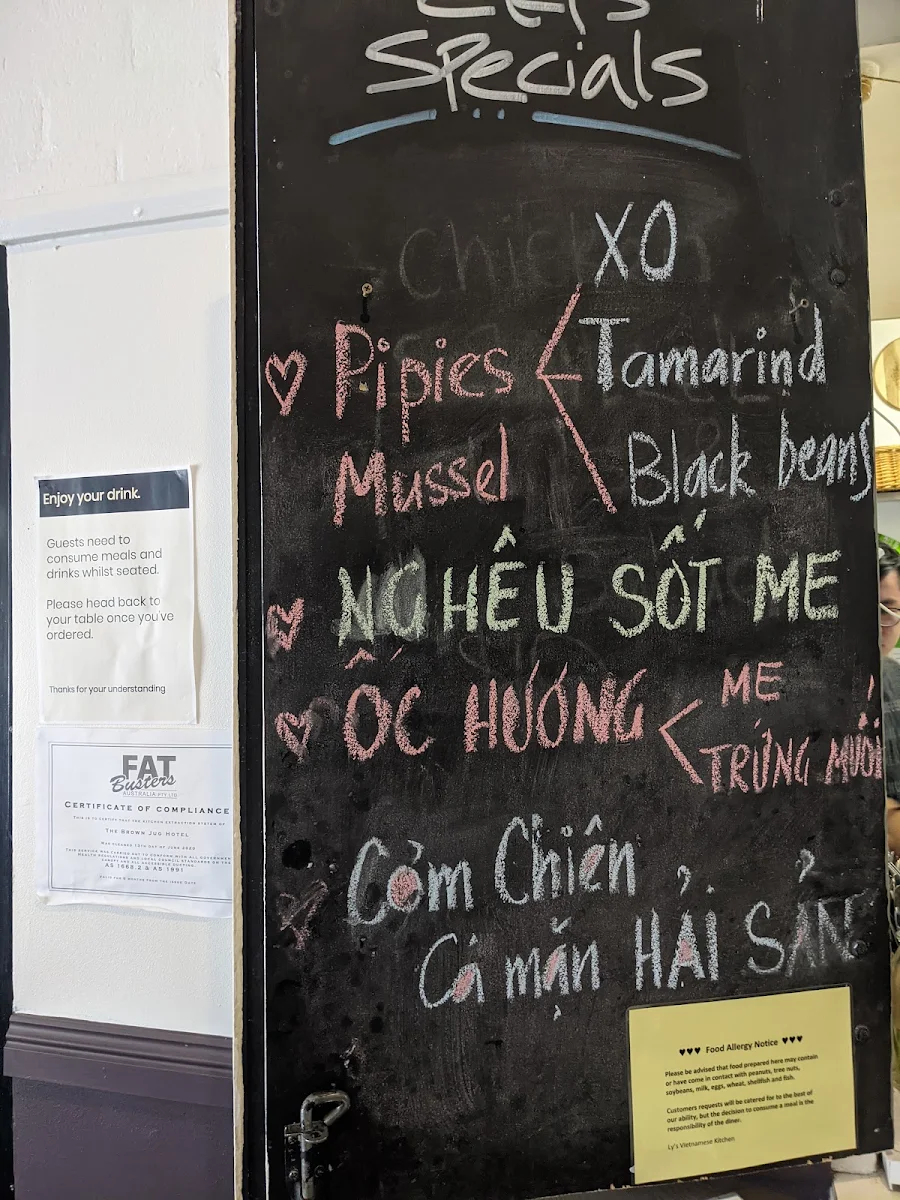 Specials
XO
♥ Pipies < Tamarind
Mussel Black beans
♥ NGHÊU SỐT ME
♥ ỐC HƯƠNG < ME
TRỨNG MUỐI
♥ Cơm Chiên
Cá mặn HẢI SẢN
Enjoy your drink.
Guests need to
consume meals and
drinks whilst seated.
Please head back to
your table once you've
ordered.
Thanks for your understanding
FAT
Busters
AUSTRALIA PTY LTD
CERTIFICATE OF COMPLIANCE
THIS IS TO CERTIFY THAT THE KITCHEN EXTRACTION SYSTEM OF
THE BROWN JUG HOTEL
AS 1668.2 & AS 1851
♥♥♥ Food Allergy Notice ♥♥♥
Please be advised that food prepared here may contain
or have come in contact with peanuts, tree nuts,
soybeans, milk, eggs, wheat, shellfish and fish.
Customers requests will be catered for to the best of
our ability, but the decision to consume a meal is the
responsibility of the diner.
Ly's Vietnamese Kitchen